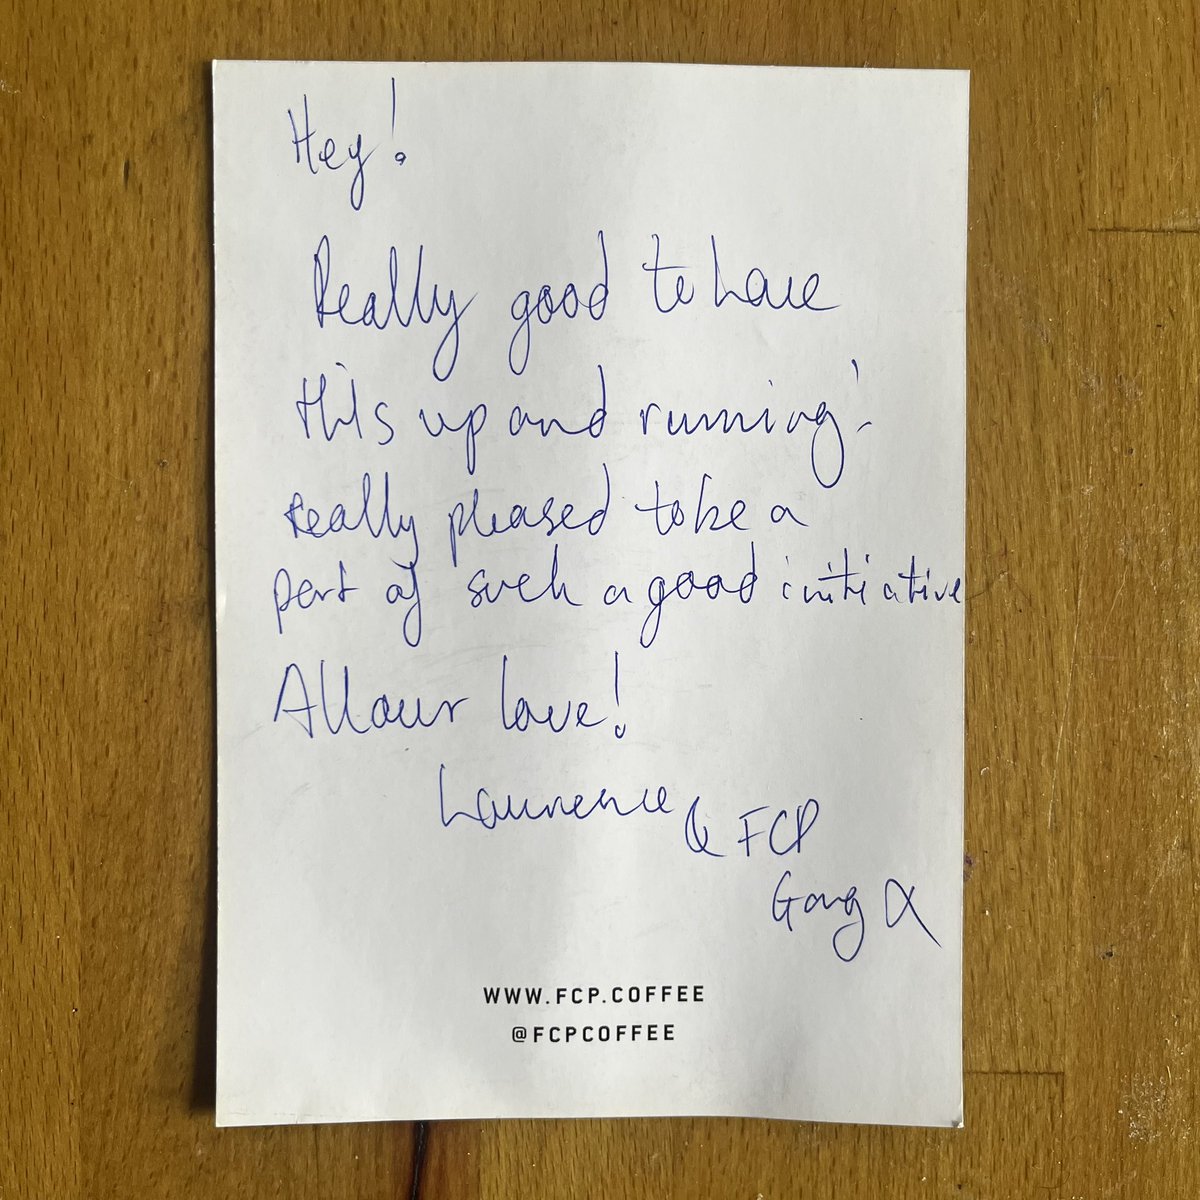 Hey!
Really good to have
this up and running!
really pleased to be a
part of such a good initiative
All our love!
Laurence
& FCP
Gang X
WWW.FCP.COFFEE
@FCPCOFFEE